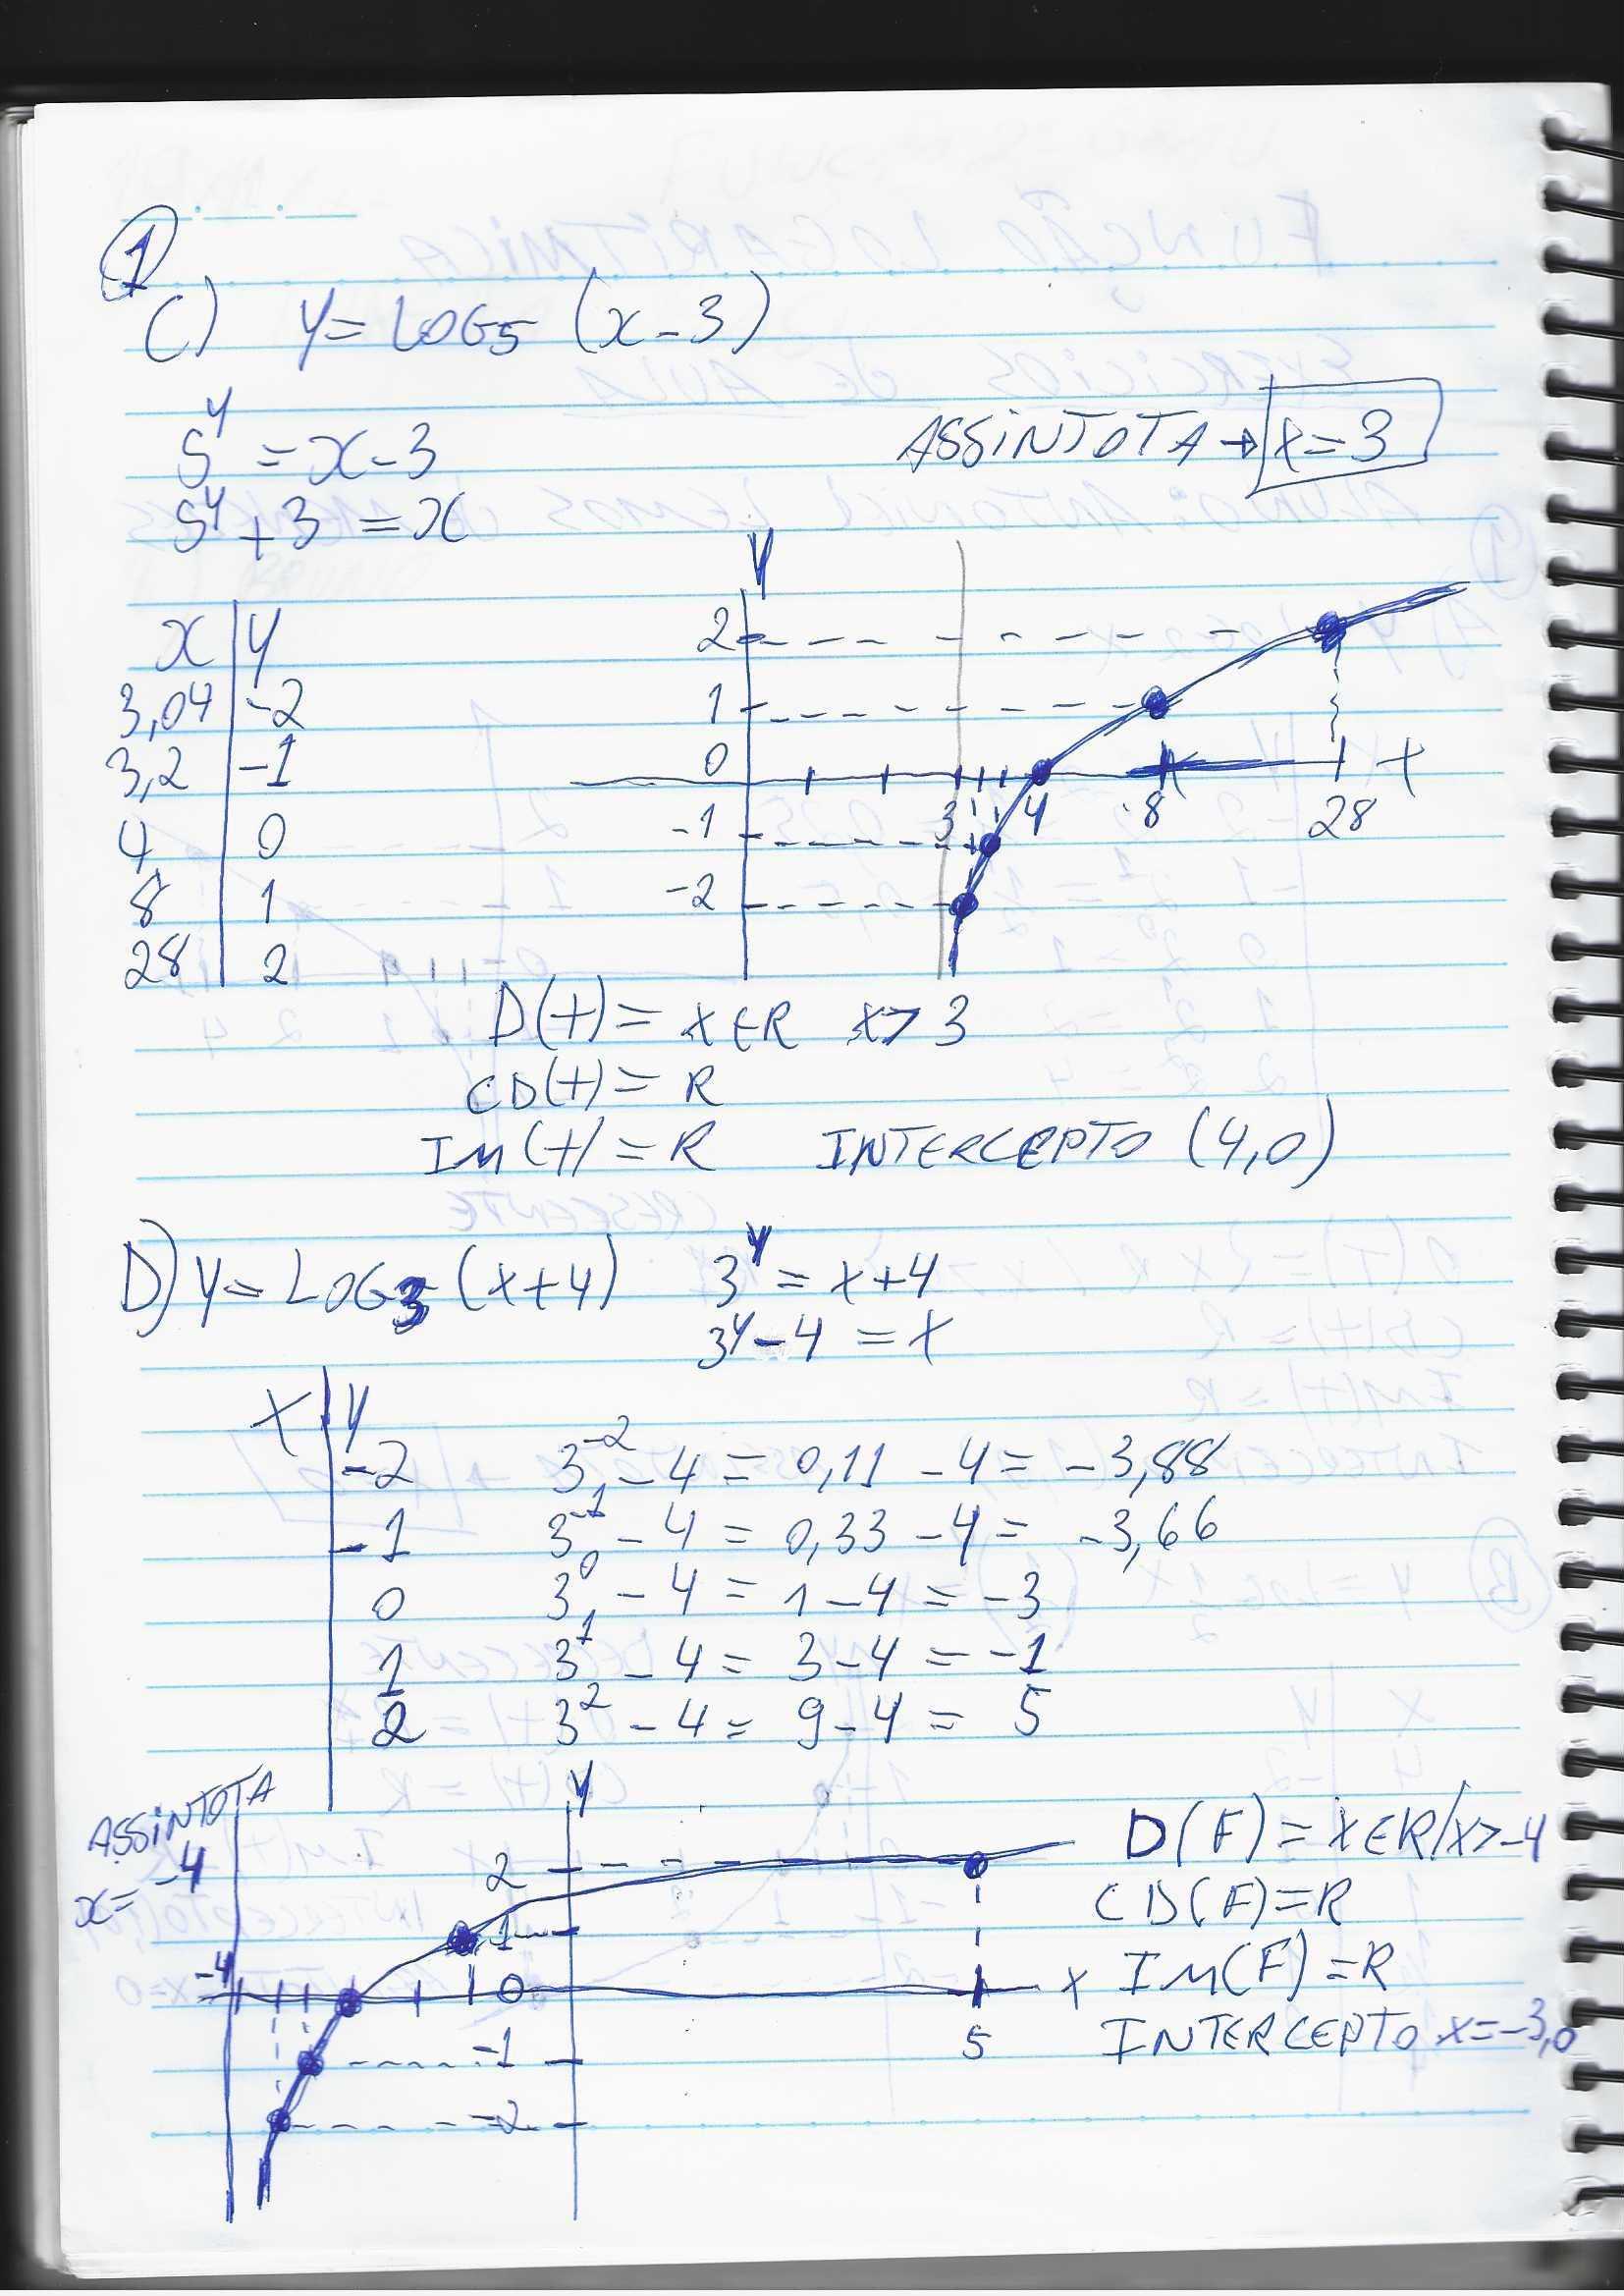 1
C) y = LOG5 (x-3)
5^y = x-3
ASSINTOTA → x=3
5^y + 3 = x
x | y
3,04 | -2
3,2 | -1
4 | 0
8 | 1
28 | 2
y
2
1
0
-1
-2
3 4 8 28 x
D(f) = x ∈ R x > 3
CD(f) = R
IM(f) = R INTERCEPTO (4,0)
D) y = LOG3 (x+4) 3^y = x+4
3^y - 4 = x
x | y
-2 3^-2 - 4 = 0,11 - 4 = -3,88
-1 3^-1 - 4 = 0,33 - 4 = -3,66
0 3^0 - 4 = 1 - 4 = -3
1 3^1 - 4 = 3 - 4 = -1
2 3^2 - 4 = 9 - 4 = 5
ASSINTOTA
x = -4
y
2
1
-4 0 x
5
-1
-2
D(F) = x ∈ R/x > -4
CD(F) = R
IM(F) = R
INTERCEPTO x = -3,0